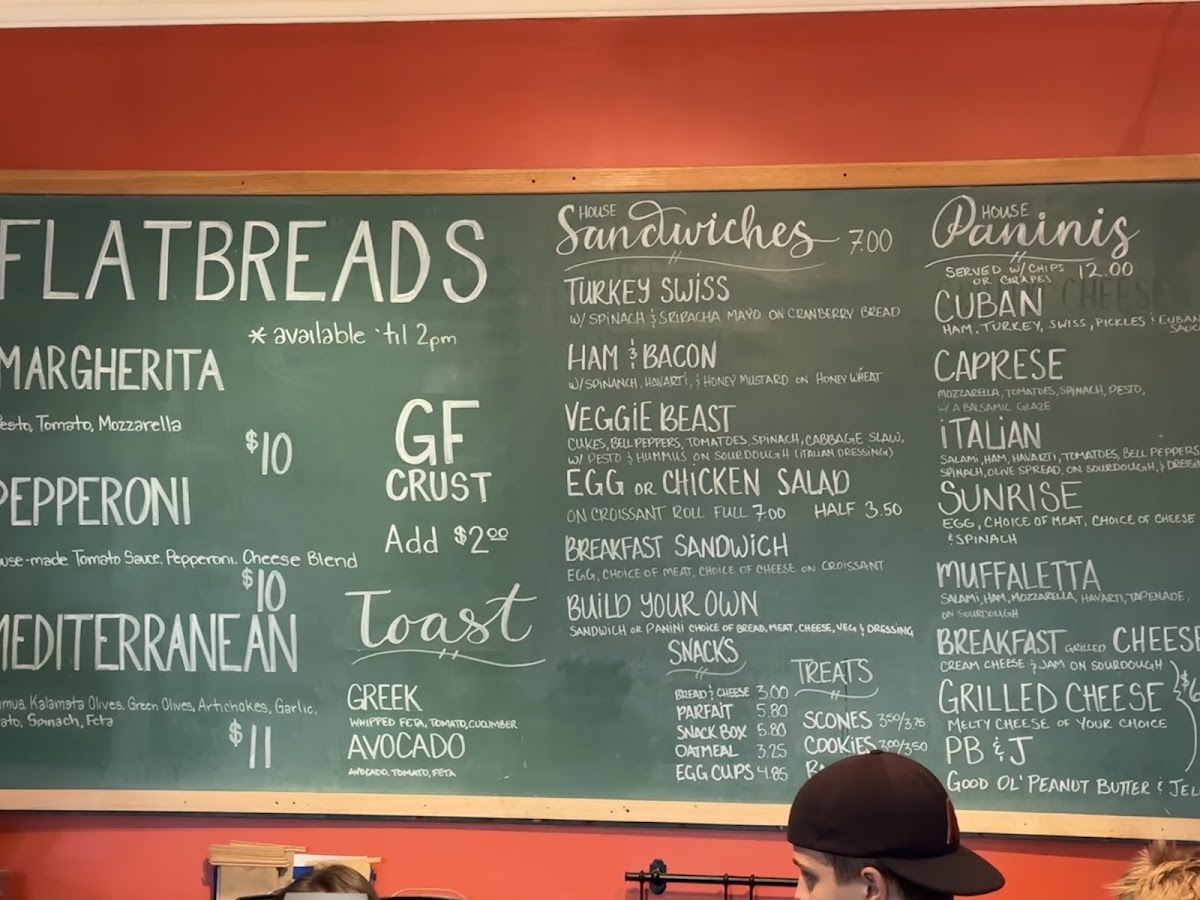 FLATBREADS
* available 'til 2pm
MARGHERITA
Pesto, Tomato, Mozzarella
$10
PEPPERONI
use-made Tomato Sauce, Pepperoni, Cheese Blend
$10
MEDITERRANEAN
mus, Kalamata Olives, Green Olives, Artichokes, Garlic,
ato, Spinach, Feta
$11
GF
CRUST
Add $2.00
Toast
GREEK
WHIPPED FETA, TOMATO, CUCUMBER
AVOCADO
AVOCADO, TOMATO, FETA
HOUSE
Sandwiches 7.00
TURKEY SWISS
W/ SPINACH & SRIRACHA MAYO ON CRANBERRY BREAD
HAM & BACON
W/SPINANCH, HAVARTI, & HONEY MUSTARD ON HONEY WHEAT
VEGGIE BEAST
CUKES, BELL PEPPERS, TOMATOES, SPINACH, CABBAGE SLAW,
W/ PESTO & HUMMUS ON SOURDOUGH (ITALIAN DRESSING)
EGG OR CHICKEN SALAD
ON CROISSANT ROLL FULL 7.00 HALF 3.50
BREAKFAST SANDWICH
EGG, CHOICE OF MEAT, CHOICE OF CHEESE ON CROISSANT
BUILD YOUR OWN
SANDWICH OR PANINI CHOICE OF BREAD, MEAT, CHEESE, VEG & DRESSING
SNACKS
BREAD & CHEESE 3.00
PARFAIT 5.80
SNACK BOX 5.80
OATMEAL 3.25
EGG CUPS 4.85
TREATS
SCONES 3.50/3.75
COOKIES 3.00/3.50
HOUSE
Paninis
SERVED W/ CHIPS 12.00
OR GRAPES
CUBAN CHEESE
HAM, TURKEY, SWISS, PICKLES & CUBAN
SAUCE
CAPRESE
MOZZARELLA, TOMATOES, SPINACH, PESTO,
W/ A BALSAMIC GLAZE
ITALIAN
SALAMI, HAM, HAVARTI, TOMATOES, BELL PEPPERS
SPINACH, OLIVE SPREAD, ON SOURDOUGH, & DRESSI
SUNRISE
EGG, CHOICE OF MEAT, CHOICE OF CHEESE
& SPINACH
MUFFALETTA
SALAMI, HAM, MOZZARELLA, HAVARTI, TAPENADE,
ON SOURDOUGH
BREAKFAST GRILLED CHEESE
CREAM CHEESE & JAM ON SOURDOUGH
GRILLED CHEESE
MELTY CHEESE OF YOUR CHOICE
PB & J
GOOD OL' PEANUT BUTTER & JEL